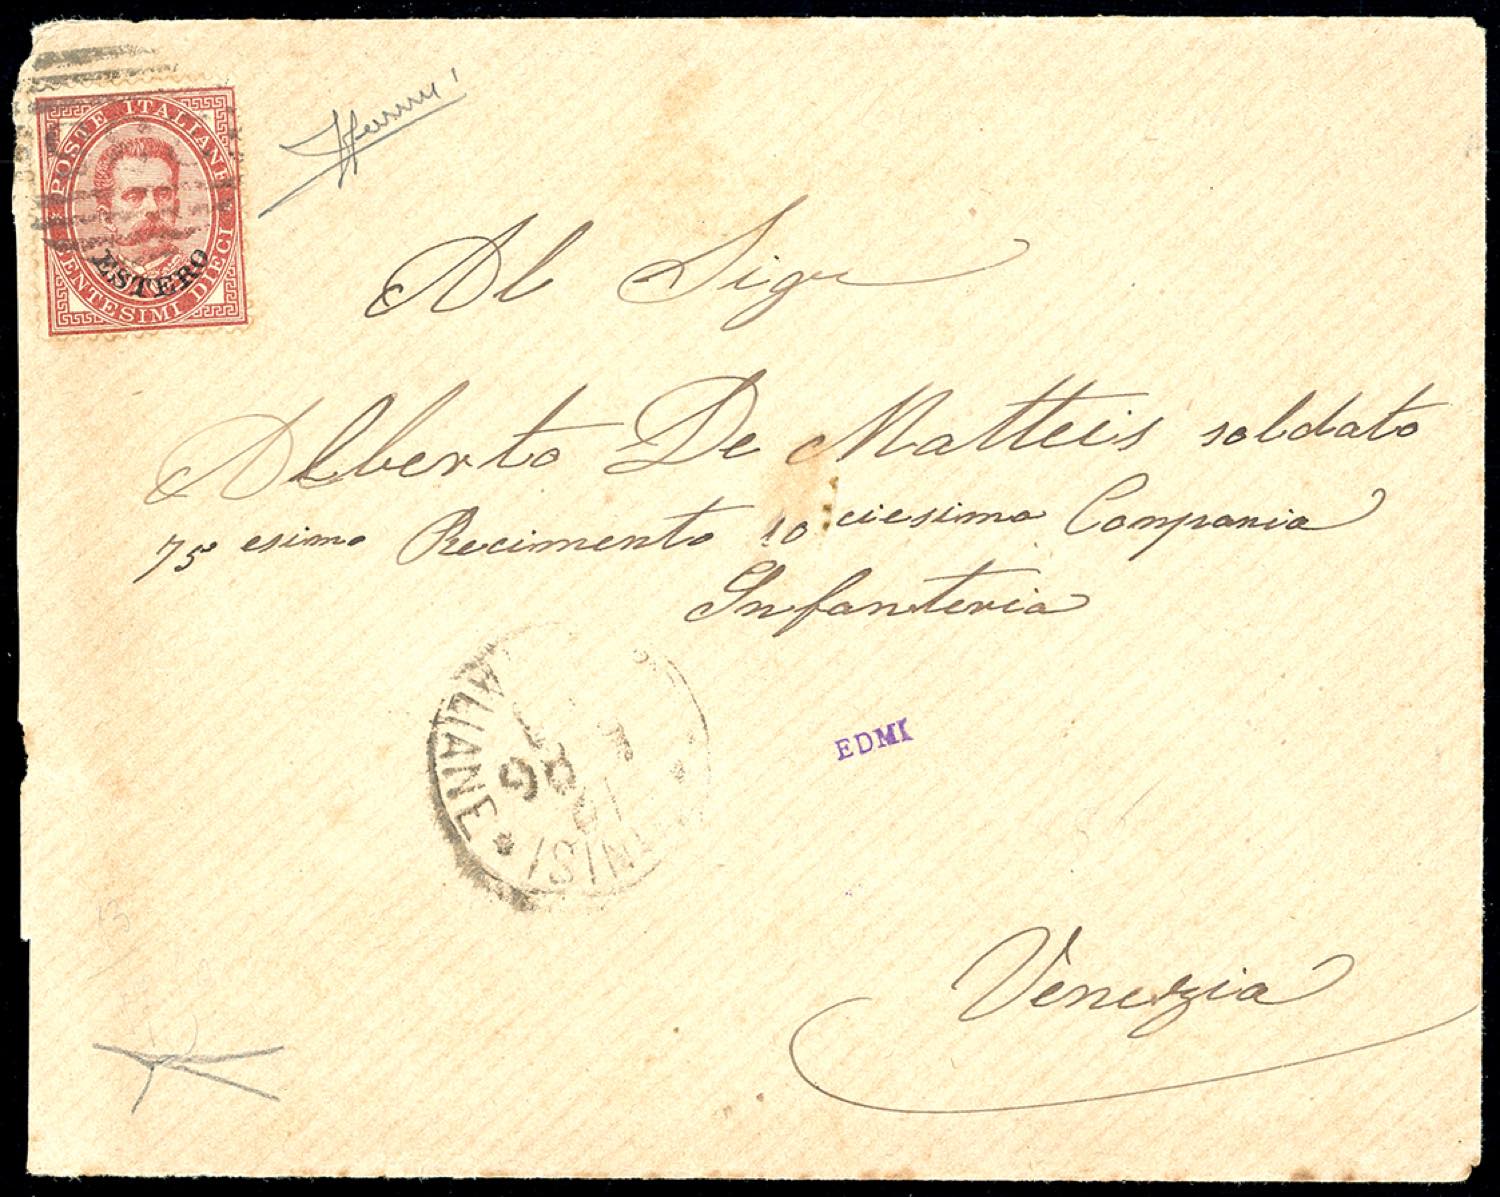 POSTE ITALIANE
ESTERO
CENTESIMI DIECI
Al Sigr
Alberto De Matteis soldato
75 esimo Recimento 10 ciesima Conpania
Infanteria
ALIANE * TUNISI *
86
EDMI
Venezia